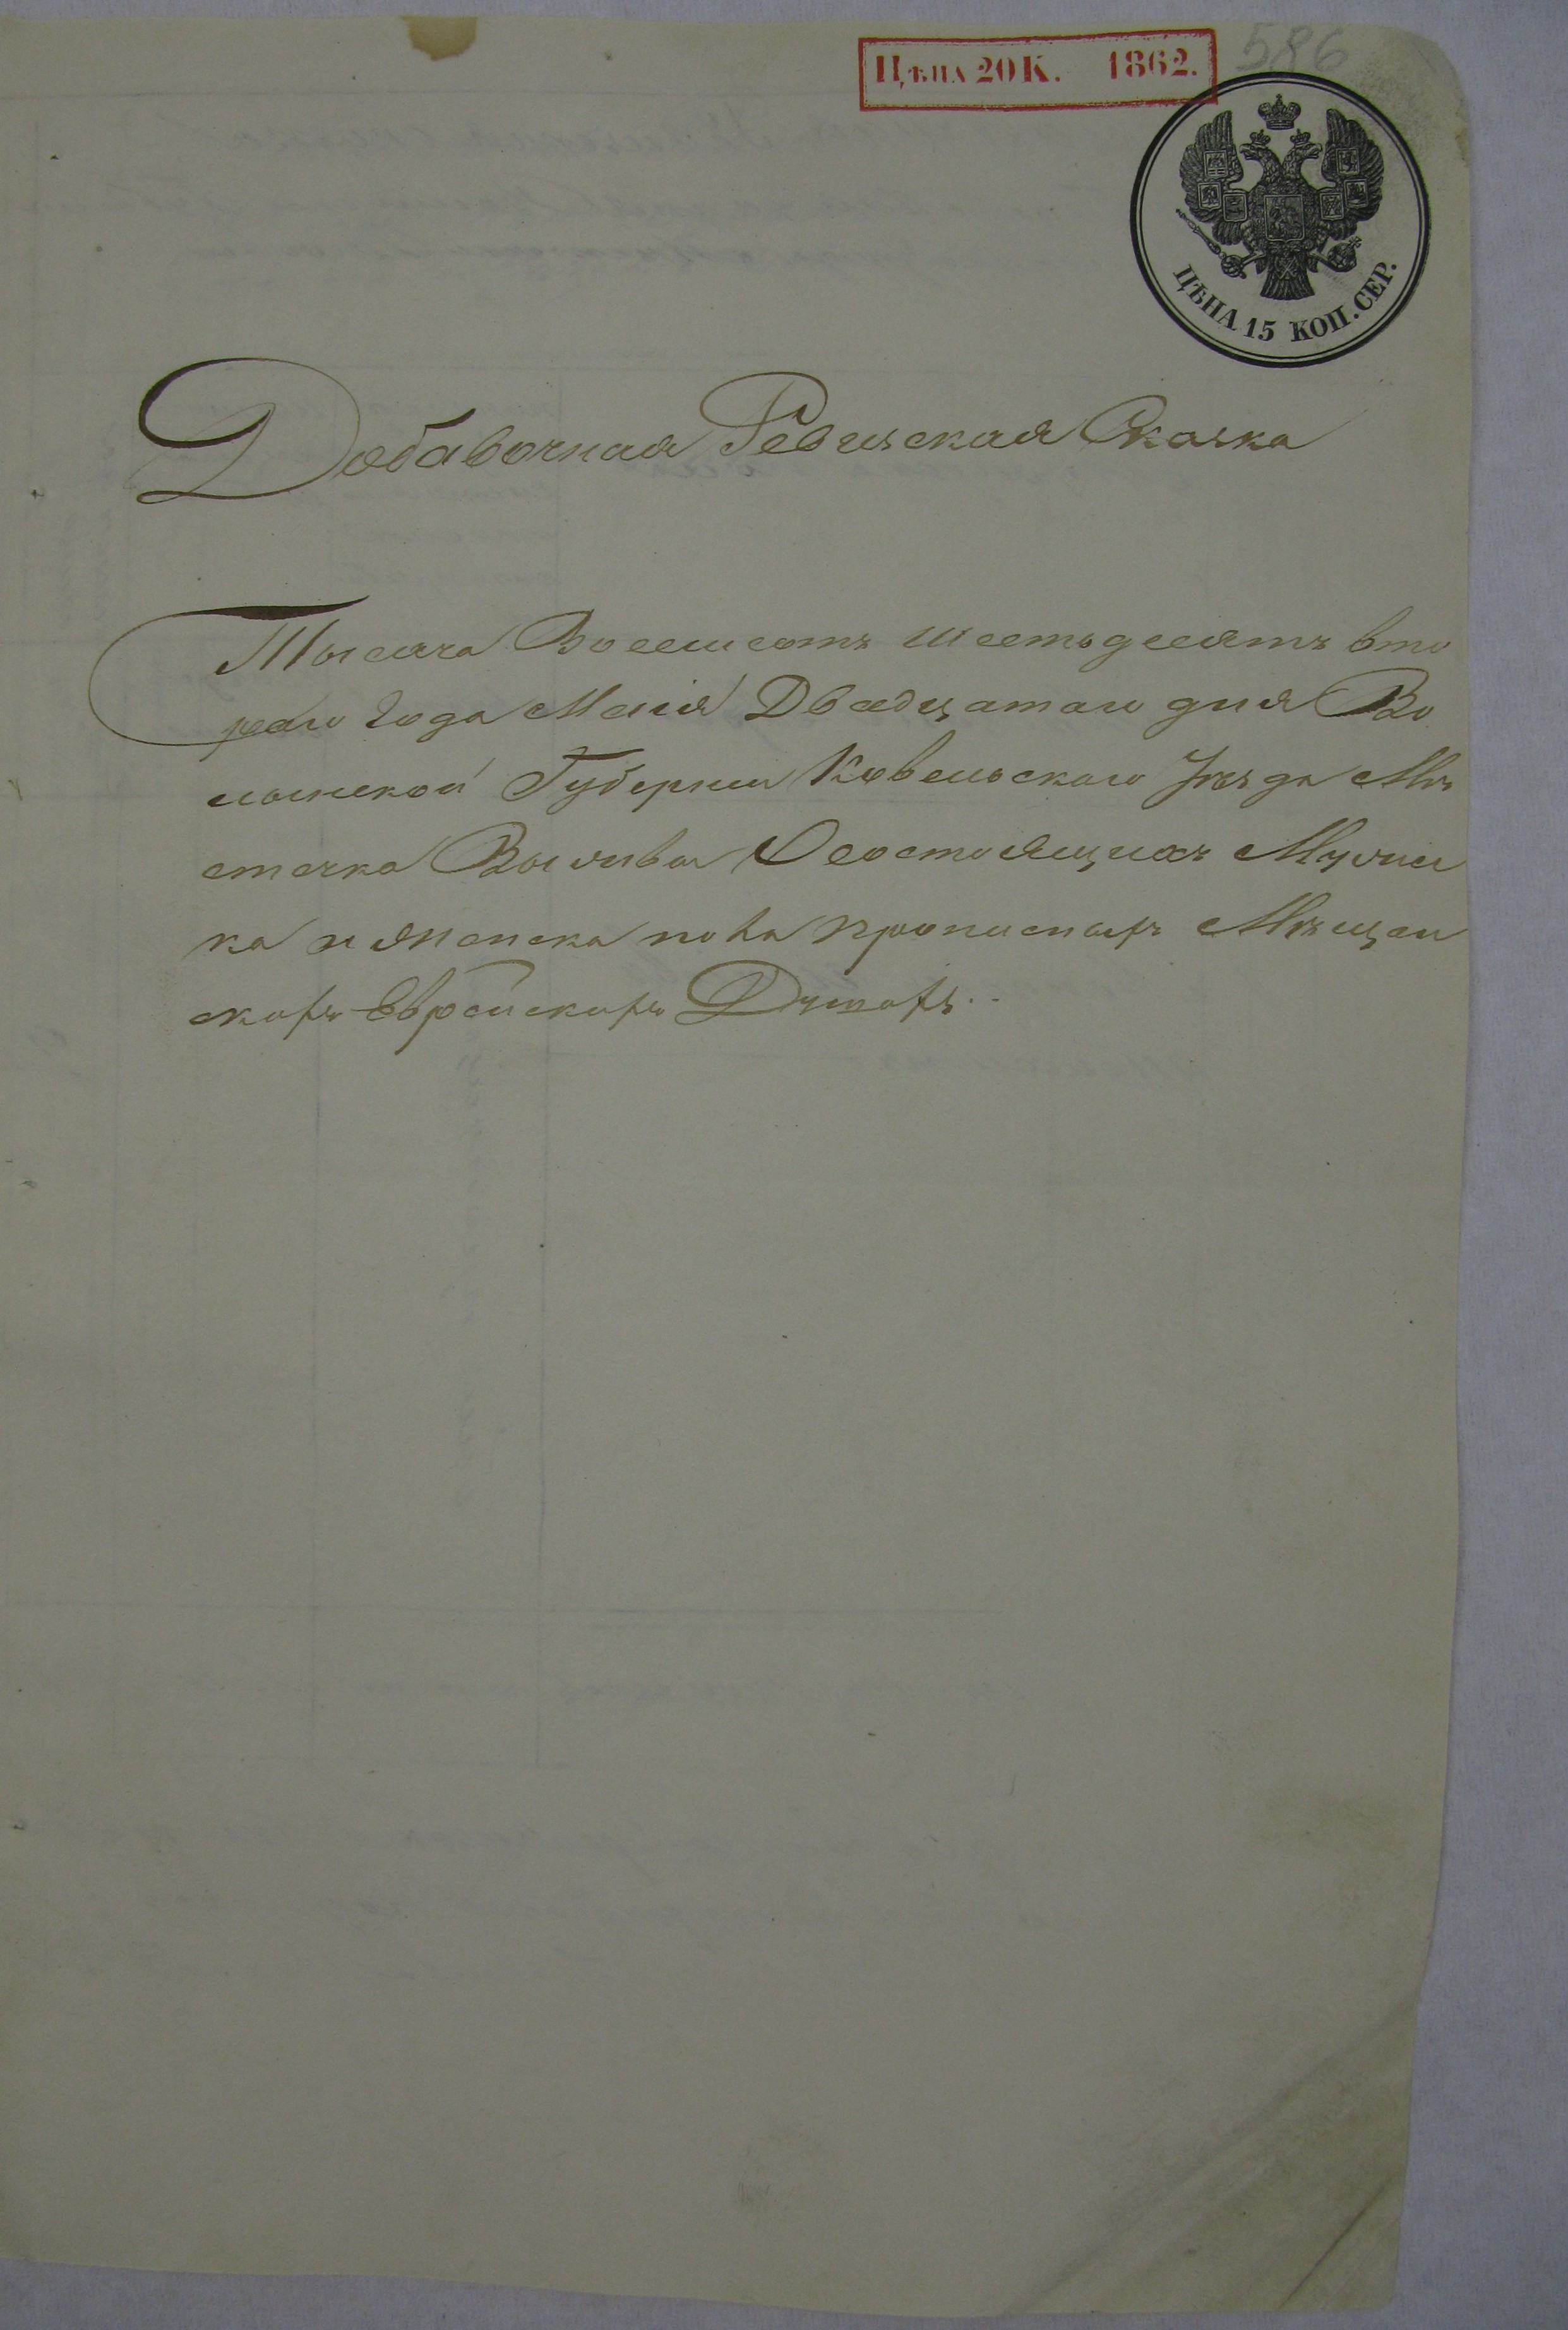 586
Цѣна 20 К. 1862.
ЦѢНА 15 КОП. СЕР.
Добавочная Ревизская Сказка
Тысяча Восемсотъ шестьдесятъ вто
раго Года Маія Двадцатаго дня Во
лынской Губерніи Ковельскаго Уѣзда Мѣ
стечка Выжвы О состоящихъ Мужис
ка и женска пола прописныхъ Мѣщан
скихъ Еврейскихъ Душахъ..